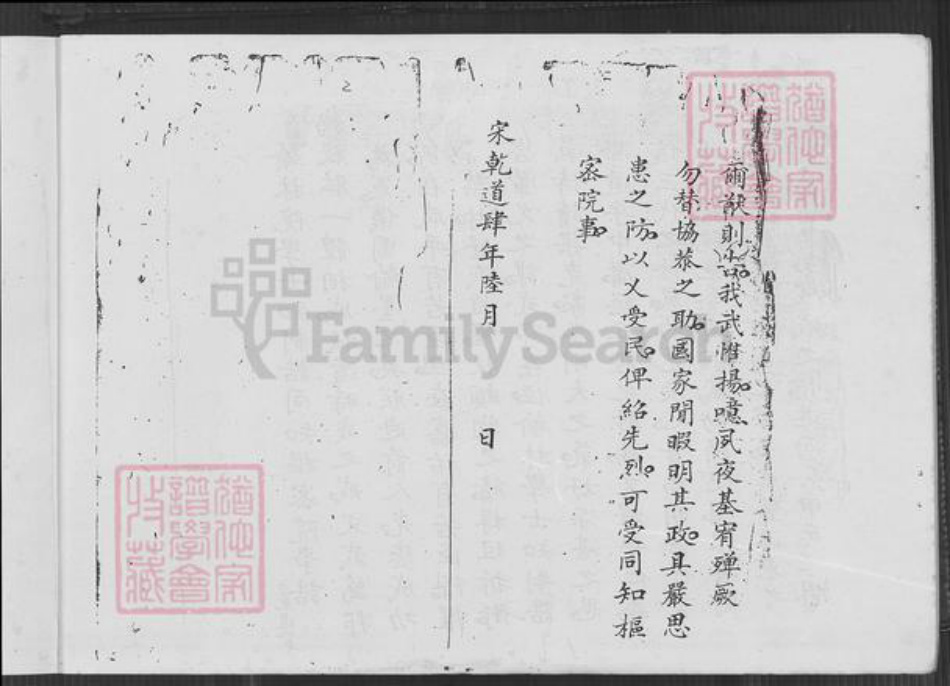 爾猷則告我武惟揚噫夙夜基宥殫厥
勿替協恭之助國家閒暇明其政具嚴思
患之防以乂受民俾紹先烈可受同知樞
宻院事
宋乾道肆年陸月 日
猶他家譜學會收藏
猶他家譜學會收藏
FamilySearch
2